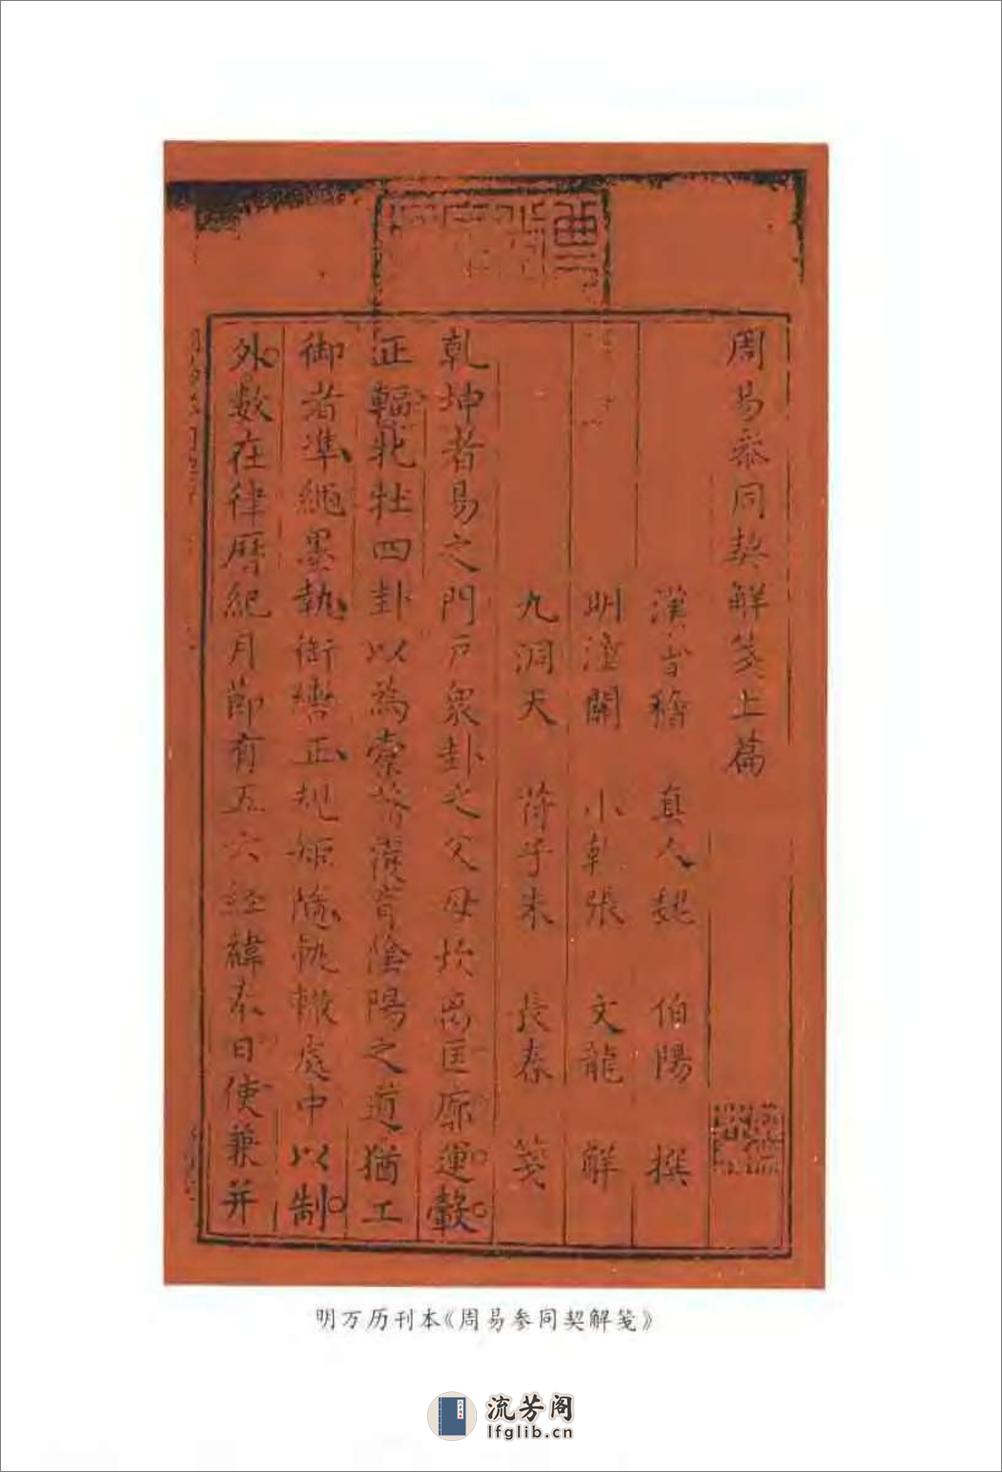 周易叅同契解箋上篇
漢會稽 真人魏 伯陽 撰
明潼關 小乾張 文龍 解
九洞天 荷子朱 長春 箋
乾坤者易之門戶衆卦之父母坎离匡廓運轂
正輻牝牡四卦以為槖籥覆冐陰陽之道猶工
御者凖繩墨執銜轡正規矩隨軌轍處中以制
外數在律曆紀月節有五六經緯奉日使兼并
明万历刊本《周易参同契解笺》
流芳阁
lfglib.cn